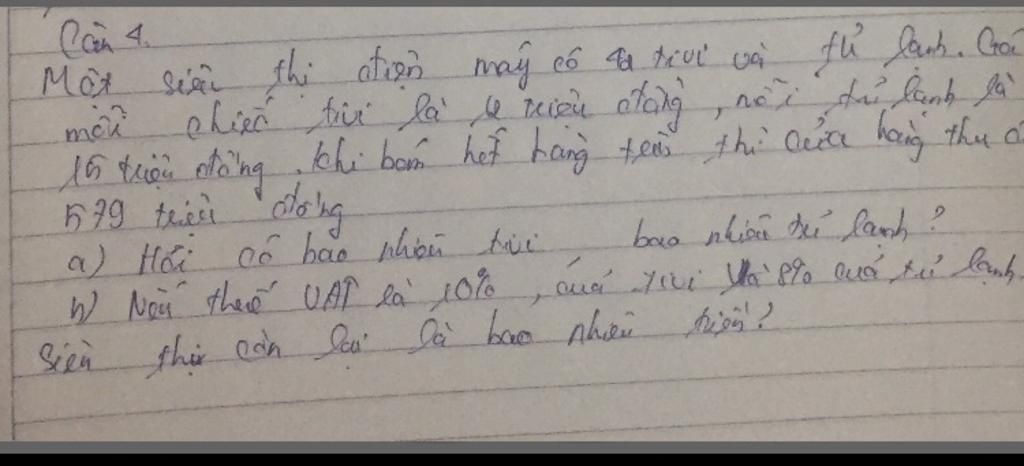 Câu 4.
Một siêu thị điện máy có ti vi và tủ lạnh. Giá
mỗi chiếc tivi là triệu đồng, mỗi tủ lạnh là
15 triệu đồng. khi bán hết hàng trên thì cửa hàng thu
579 triệu đồng
a) Hỏi có bao nhiêu tivi bao nhiêu tủ lạnh?
b) Nếu thuế VAT là 10%, của tivi và 8% của tủ lạnh.
Siêu thị còn lại là bao nhiêu tiền?